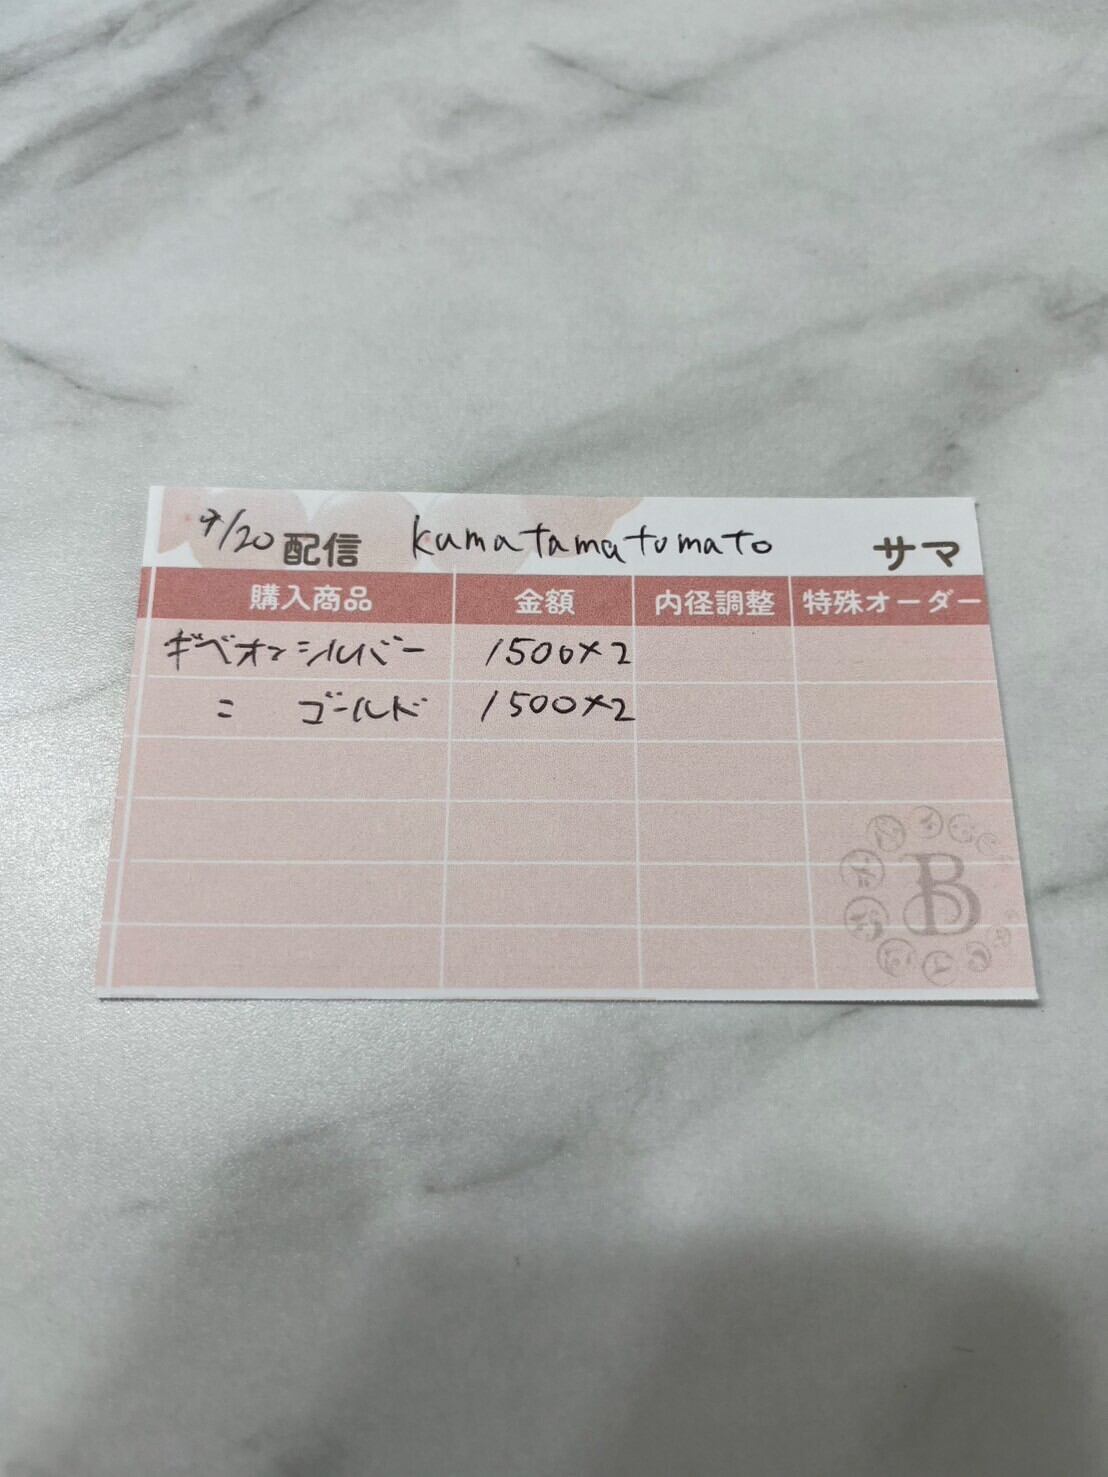 9/20 配信 kumatamatomato サマ
購入商品 金額 内径調整 特殊オーダー
ギベオンシルバー 1500×2
〃 ゴールド 1500×2
B